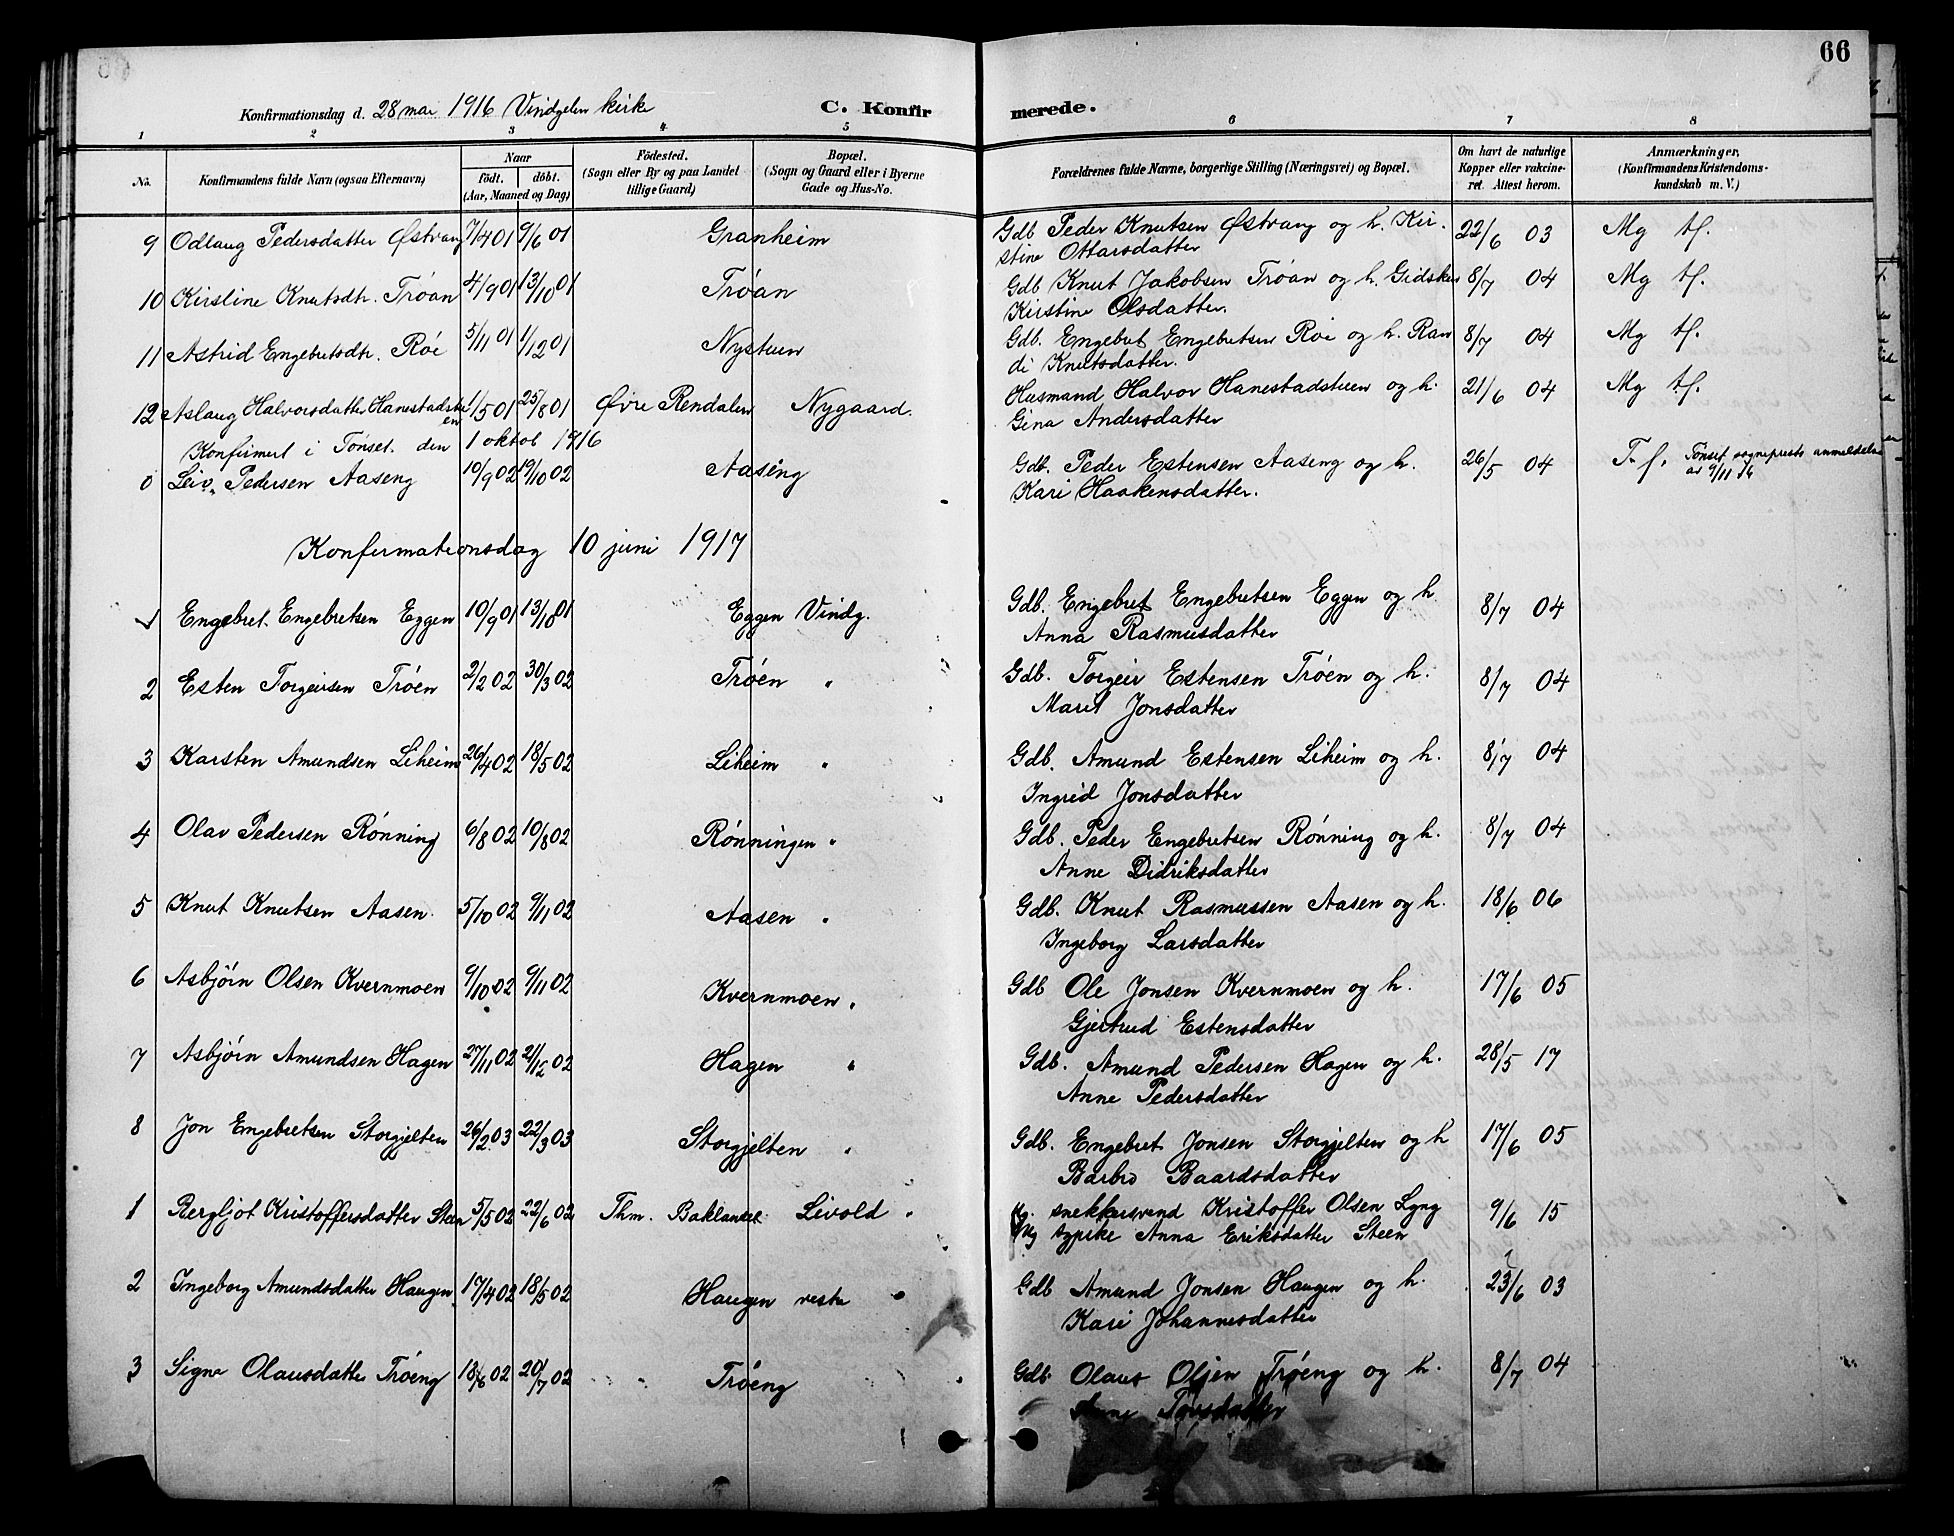 66
Konfirmationsdag d. 28 mai 1916 Vindgelen kirke C. Konfirmerede.
1 2 3 4 5 6 7 8
No. Konfirmandens fulde Navn (ogsaa Efternavn) Naar födt. döbt. (Aar, Maaned og Dag) Födested. (Sogn eller By og paa Landet tillige Gaard) Bopæl. (Sogn og Gaard eller i Byerne Gade og Hus-No. Forældrenes fulde Navne, borgerlige Stilling (Næringsvei) og Bopæl. Om havt de naturlige Kopper eller vakcineret. Attest herom. Anmærkninger, (Konfirmandens Kristendomskundskab m. V.)
9 Odlaug Pedersdatter Østvang 7/4 01 9/6 01 Granheim Gdb Peder Knutsen Østvang og h. Kir- 22/6 03 Mg tf.
stine Ottarsdatter
10 Kirstine Knutsdtr. Tróan 4/9 01 13/10 01 Tróan Gdb Knut Jakobsen Tróan og h. Gidsken 8/7 04 Mg tf.
Kirstine Olsdatter.
11 Astrid Engebretsdtr. Róe 5/11 01 1/12 01 Nystuen Gdb. Engebret Engebretsen Róe og h. Ran 8/7 04 Mg tf.
di Knutsdatter.
12 Aslaug Halvorsdatter Hanestadstuen 1/5 01 25/8 01 Øvre Rendalen Nygaard. Husmand Halvor Hanestadstuen og h. 21/6 04 Mg tf.
Gina Andersdatter
Konfirmert i Tónset den 1 oktob 1916
0 Leiv Pedersen Aaseng 10/9 02 19/10 02 Aaséng Gdb. Peder Estensen Aaseng og h. 26/5 04 T. f. Tönset sogneprests anmeldelse
Kari Haakensdatter. av 9/11 16
Konfirmationsdag 10 juni 1917
1 Engebret Engebretsen Eggen 10/9 01 13/10 01 Eggen Vindg. Gdb. Engebret Engebretsen Eggen og h. 8/7 04
Anna Rasmusdatter
2 Esten Torgeirsen Tróen 2/2 02 30/3 02 Tróen " Gdb. Torgeir Estensen Tróen og h. 8/7 04
Maret Jonsdatter
3 Karsten Amundsen Liheim 26/4 02 18/5 02 Liheim " Gdb. Amund Estensen Liheim og h. 8/7 04
Ingrid Jonsdatter
4 Olav Pedersen Rónning 6/8 02 10/8 02 Rónningen " Gdb. Peder Engebretsen Rónning og h. 8/7 04
Anne Didriksdatter
5 Knut Knutsen Aasen. 5/10 02 9/11 02 Aasen " Gdb. Knut Rasmussen Aasen og h. 18/6 06
Ingeborg Larsdatter
6 Asbjórn Olsen Kvernmoen 9/10 02 9/11 02 Kvernmoen " Gdb Ole Jonsen Kvernmoen og h. 17/6 05
Gjertrud Estensdatter
7 Asbjórn Amundsen Hagen 27/11 02 21/12 02 Hagen " Gdb. Amund Pedersen Hagen og h. 28/5 17
Anne Pedersdatter
8 Jon Engebretsen Storgjelten 26/2 03 22/3 03 Storgjelten " Gdb. Engebret Jonsen Storgjelten og h 17/6 05
Barbro Baardsdatter
1 Bergljot Kristoffersdatter Steen 5/5 02 22/6 02 Thm. Baklandet Livold " Ug. snekkersvend Kristoffer Olsen Lyng 9/6 15
Ug sypike Anna Eriksdatter Steen
2 Ingeborg Amundsdatter Haugen 17/4 02 18/5 02 Haugen vestre " Gdb Amund Jonsen Haugen og h. 23/6 03
Kari Johannesdatter
3 Signe Olausdatter Tróeng 18/6 02 20/7 02 Tróeng " Gdb. Olaus Olsen Tróeng og h. 8/7 04
Anne